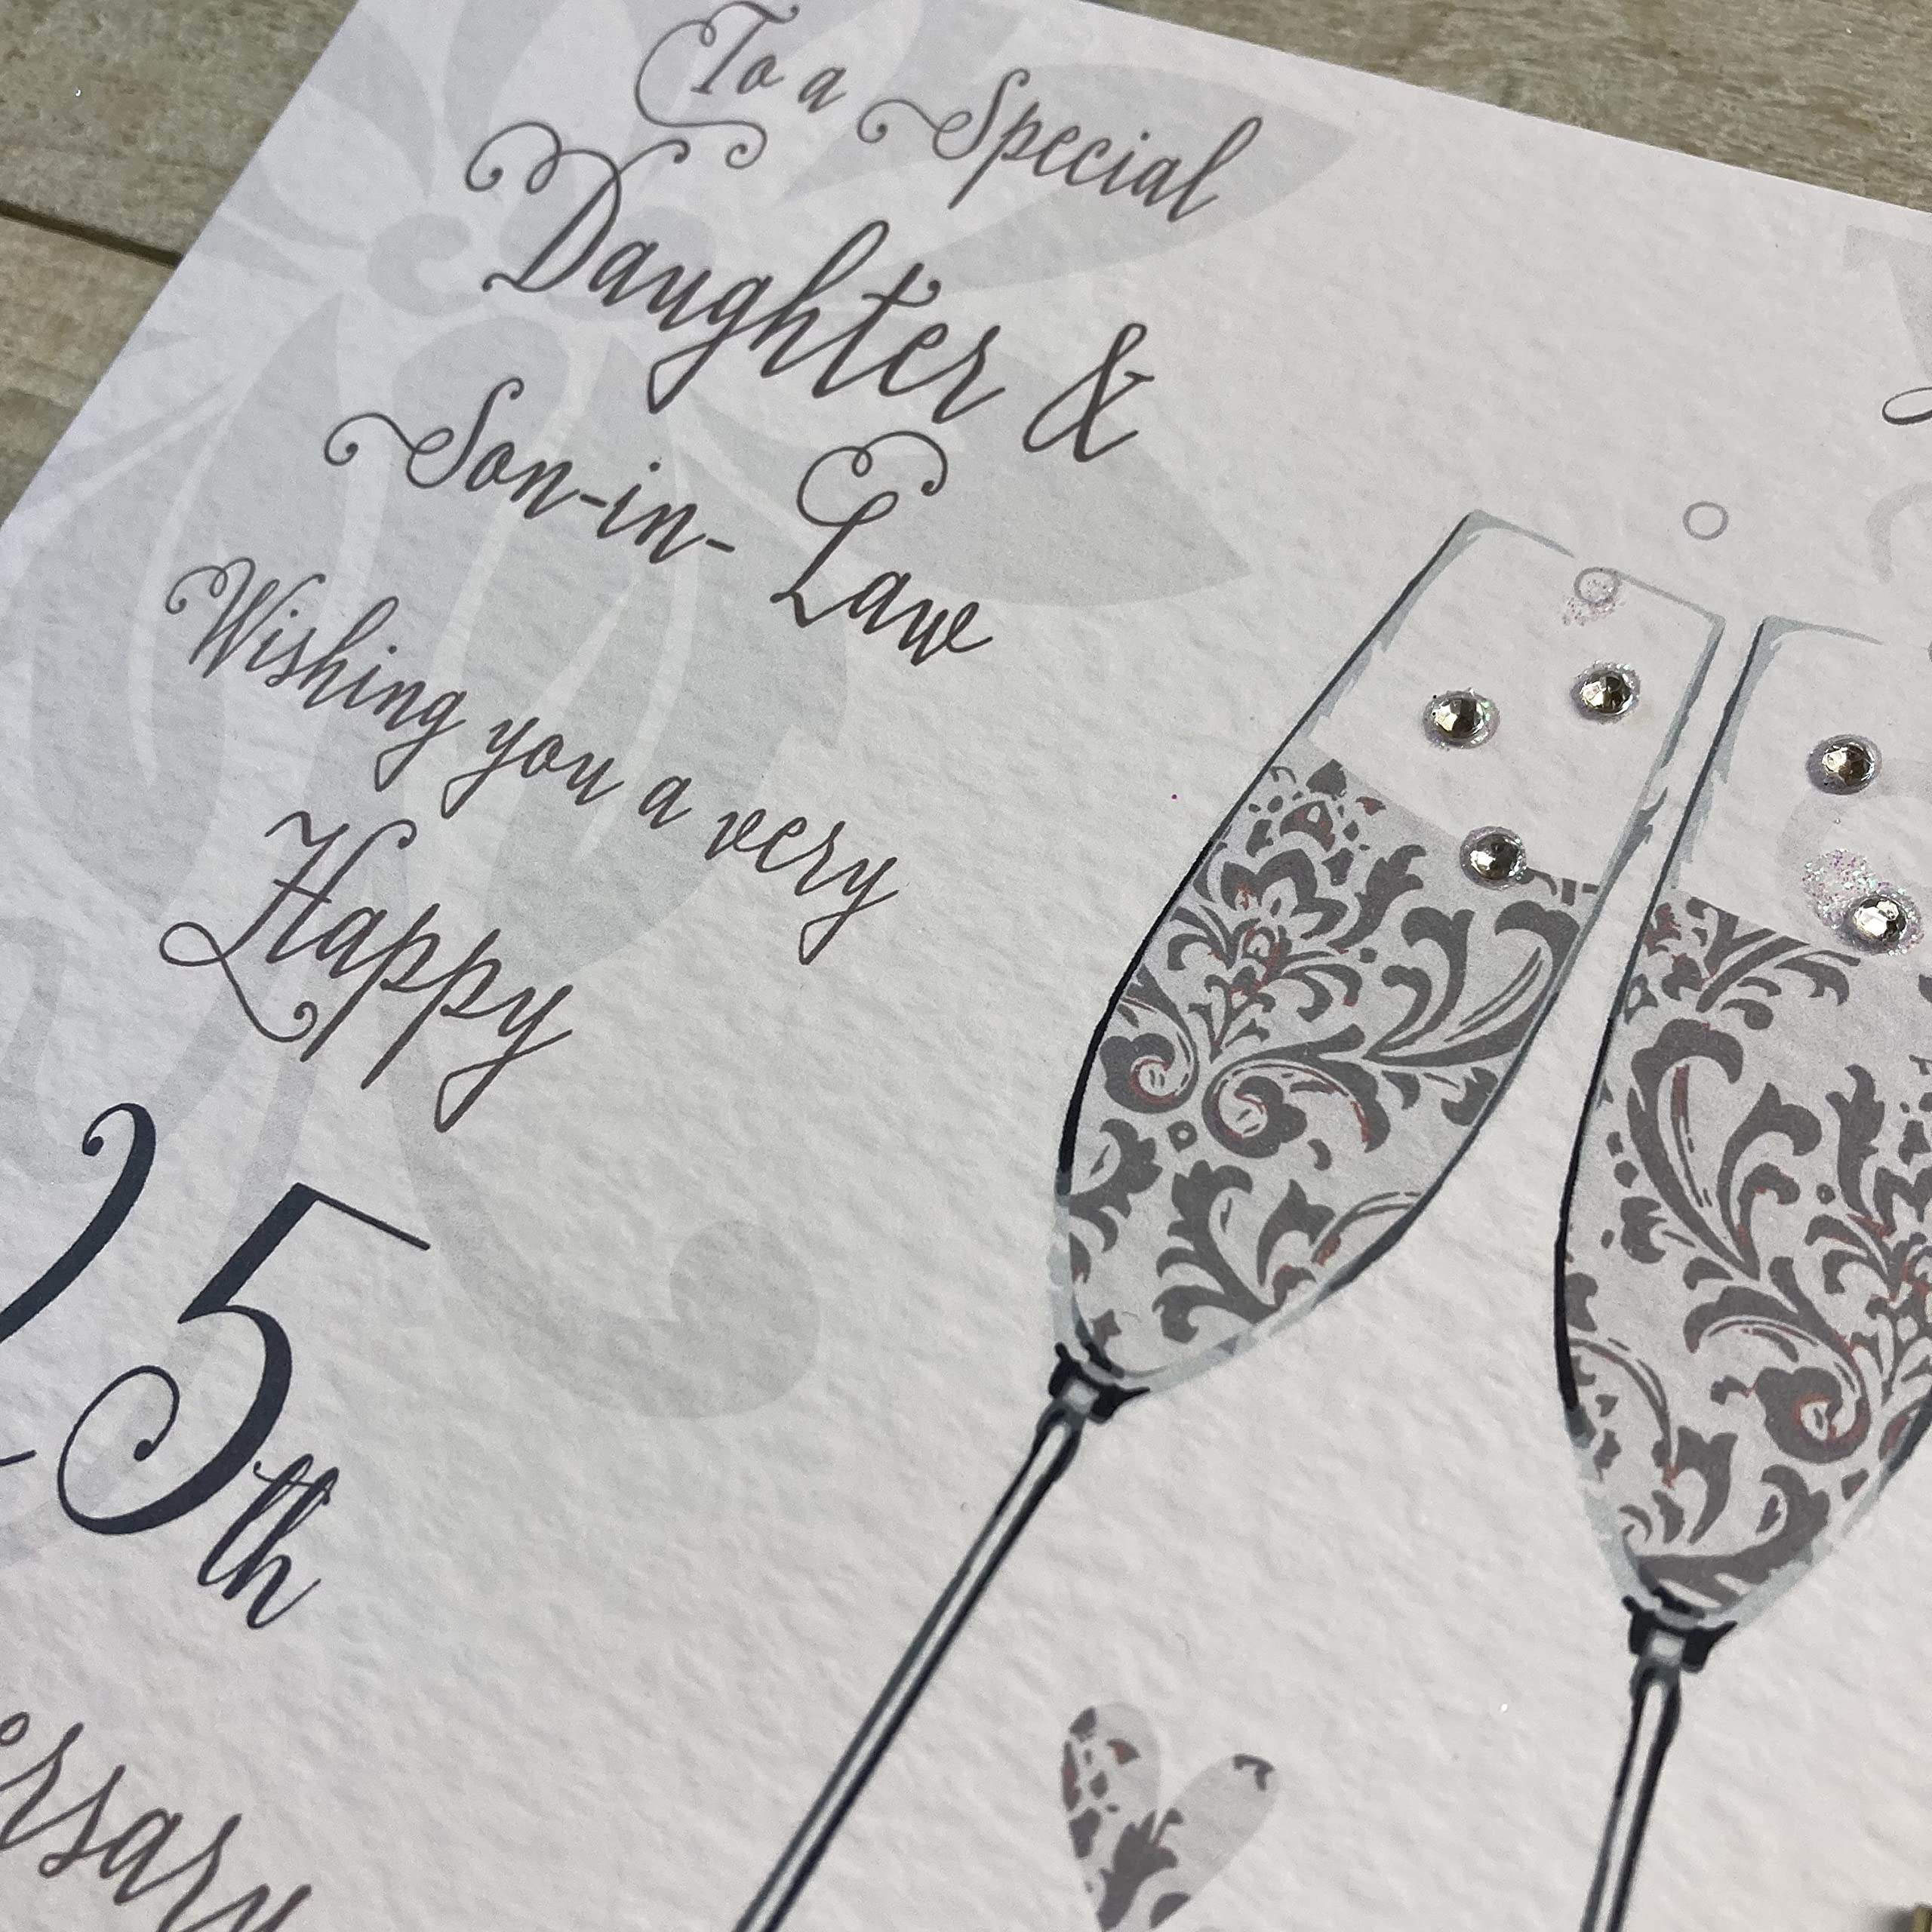 To a Special
Daughter &
Son-in-Law
Wishing you a very
Happy
25th